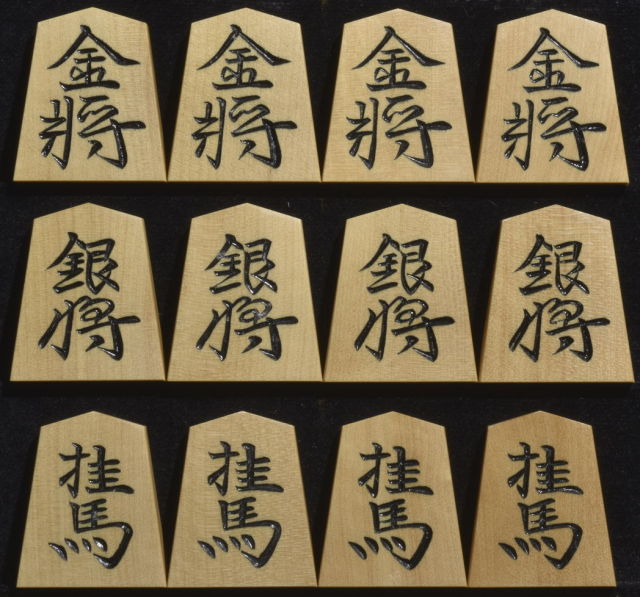 金將
金將
金將
金將
銀将
銀将
銀将
銀将
桂馬
桂馬
桂馬
桂馬